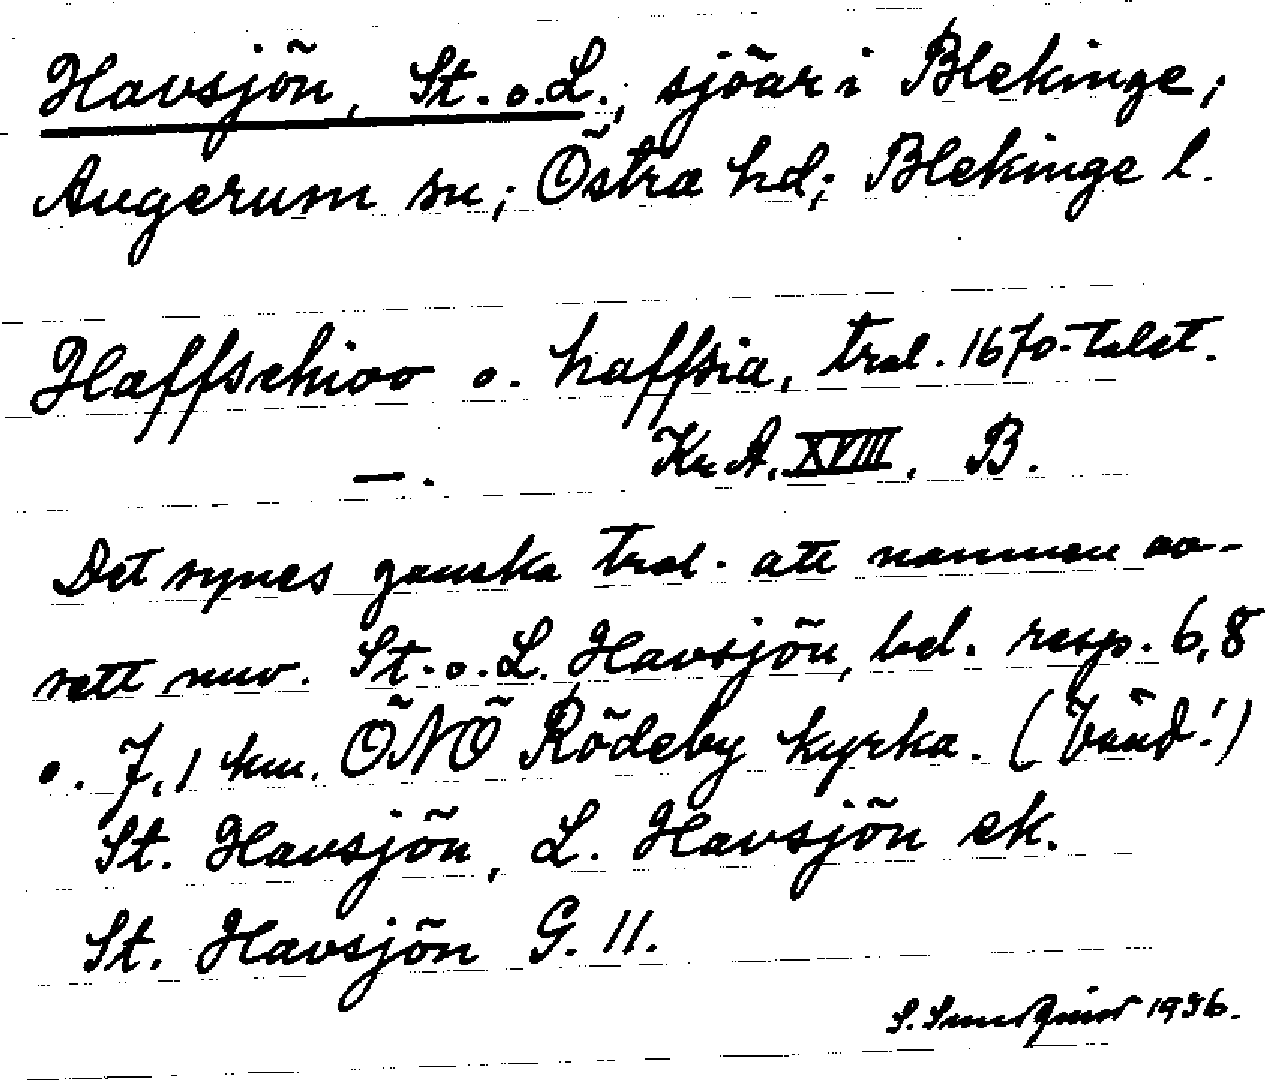 Havsjön, St. o. L., sjöar i Blekinge;
Augerum sn; Östra hd; Blekinge l.
Haffschioo o. haffsia, trol. 1670-talet.
—. KrA. XVIII. B.
Det synes ganska trol. att namnen av-
sett nuv. St. o. L. Havsjön, bel. resp. 6,8
o. 7,1 km. ÖNÖ Rödeby kyrka. (Vänd!)
St. Havsjön, L. Havsjön ek.
St. Havsjön G. 11.
S. Sundquist 1936.